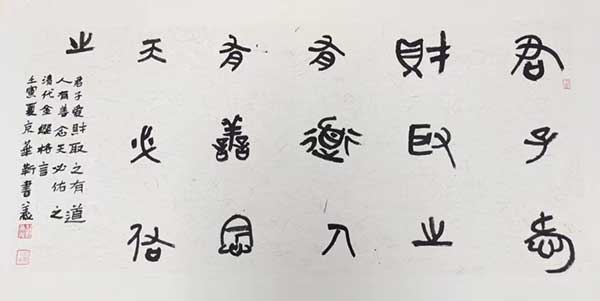 君子愛
財取之
有道人
有善念
天必佑
之
君子愛財取之有道
人有善念天必佑之
清代金纓格言
壬寅夏京華靳書